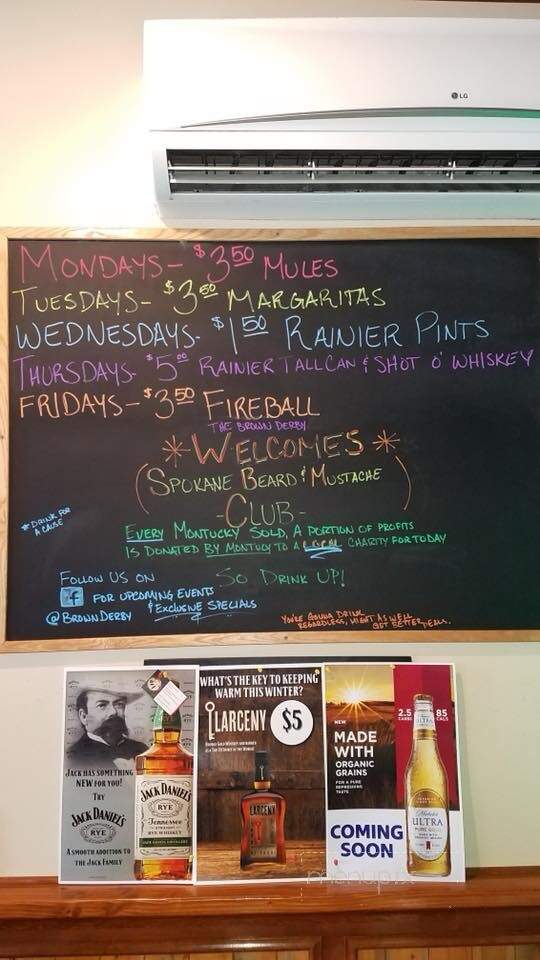 LG
MONDAYS- $3.50 MULES
TUESDAYS- $3.50 MARGARITAS
WEDNESDAYS- $1.50 RAINIER PINTS
THURSDAYS- $5.00 RAINIER TALLCAN & SHOT O' WHISKEY
FRIDAYS- $3.50 FIREBALL
THE BROWN DERBY
*WELCOMES*
(SPOKANE BEARD & MUSTACHE)
-CLUB-
*DRINK FOR
A CAUSE
EVERY MONTUCKY SOLD, A PORTION OF PROFITS
IS DONATED BY MONTUCKY TO A LOCAL CHARITY FOR TODAY
SO DRINK UP!
FOLLOW US ON
f FOR UPCOMING EVENTS
& EXCLUSIVE SPECIALS
@BROWNDERBY
YOU'RE GONNA DRINK
REGARDLESS, MIGHT AS WELL
GET BETTER DEALS.
JACK HAS SOMETHING
NEW FOR YOU!
TRY
JACK DANIEL'S
RYE
A SMOOTH ADDITION TO
THE JACK FAMILY
JACK DANIEL'S
RYE
Tennessee
STRAIGHT
RYE WHISKEY
WHAT'S THE KEY TO KEEPING
WARM THIS WINTER?
LARCENY
$5
LARCENY
NEW
MADE
WITH
ORGANIC
GRAINS
FOR A PURE
REFRESHING
TASTE
COMING
SOON
2.5
CARBS
85
CALS
Michelob
ULTRA
PURE GOLD
menupix